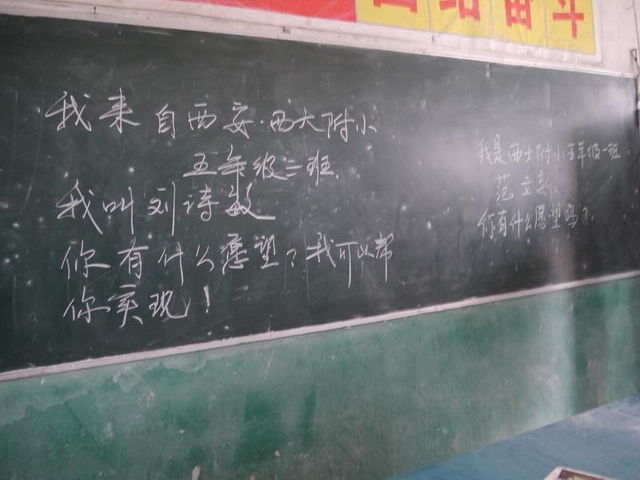 团结奋斗
我来自西安·西大附小
五年级二班
我叫刘诗敏
你有什么愿望？我可以帮
你实现！
我是西大附小五年级一班
范立
你有什么愿望吗？